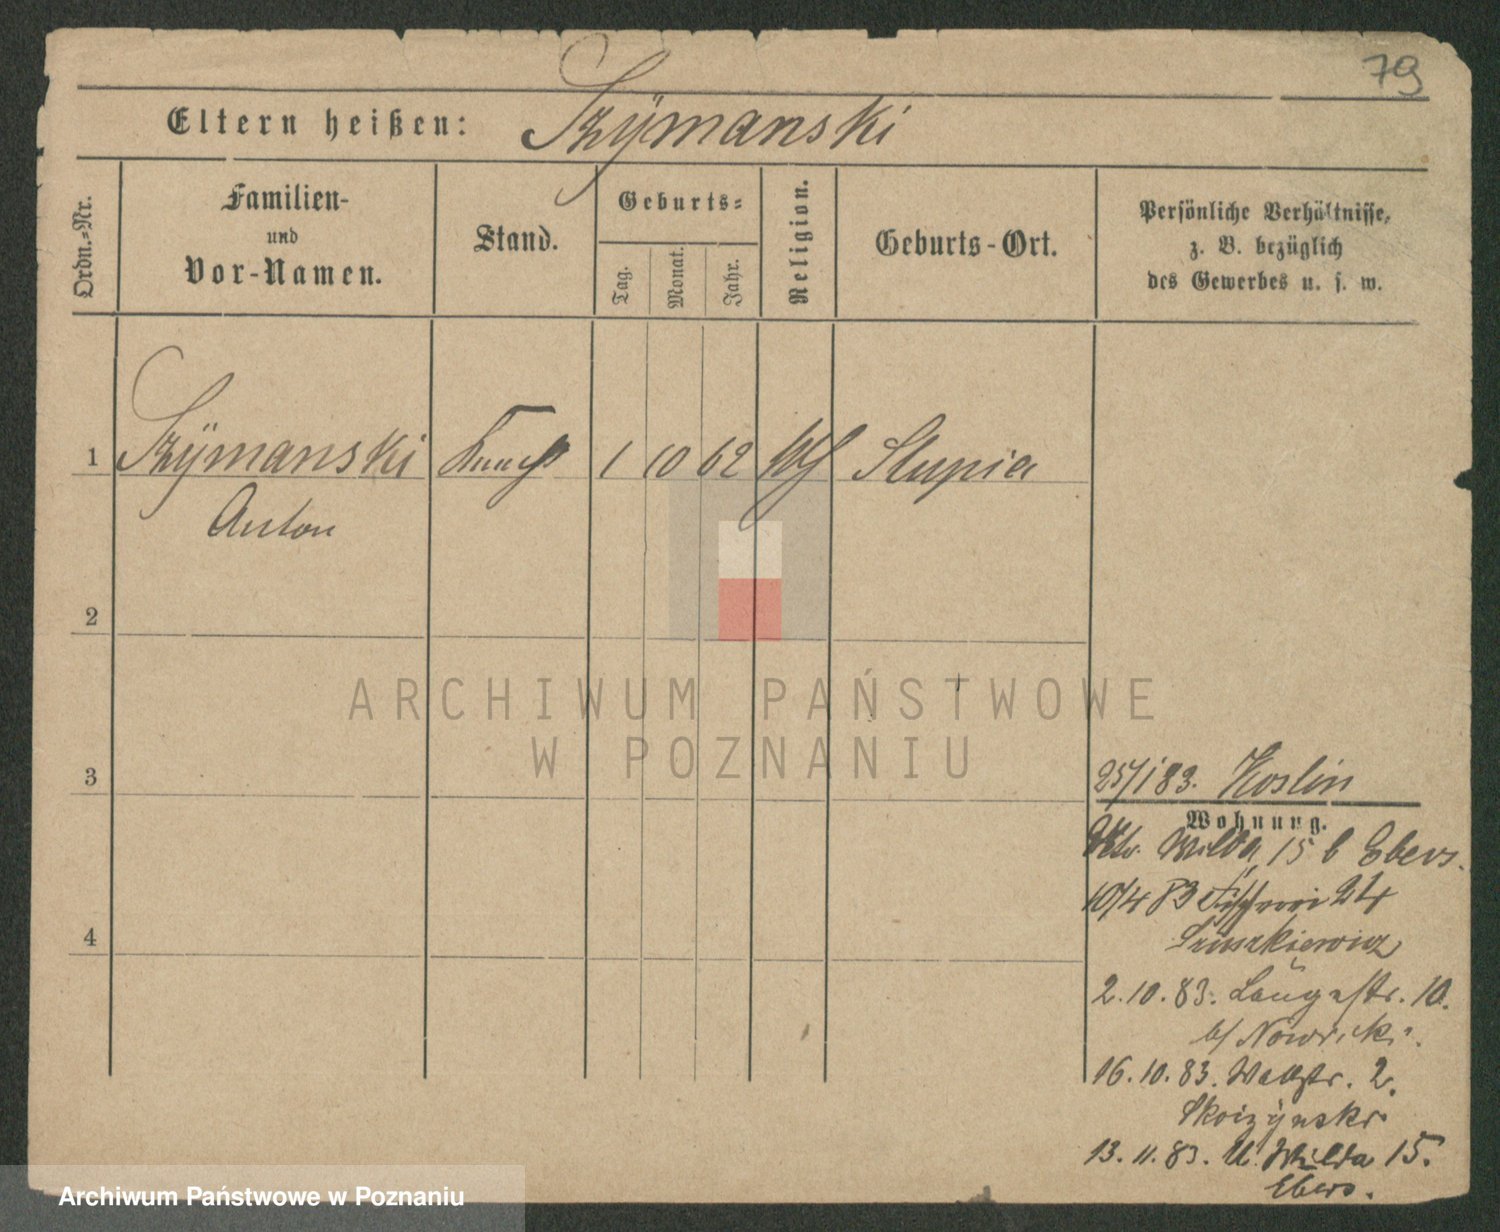 79
Eltern heißen: Szÿmanski
Ordn.-Nr.
Familien-
und
Vor-Namen.
Stand.
Geburts-
Tag.
Monat.
Jahr.
Religion.
Geburts-Ort.
Persönliche Verhältnisse,
z. B. bezüglich
des Gewerbes u. s. w.
1 Szÿmanski Knecht 1 10 62 Slupia
Anton
2
3
4
25/1 83. Koslin
Wohnung.
Wilda 15 b Ebers.
10/4 83 Fischerei 24
2.10.83. Langestr. 10.
b/ Nowicki.
16.10.83. Wallstr. 2.
13.11.83. U. Wilda 15.
Ebers.
ARCHIWUM PAŃSTWOWE
W POZNANIU
Archiwum Państwowe w Poznaniu